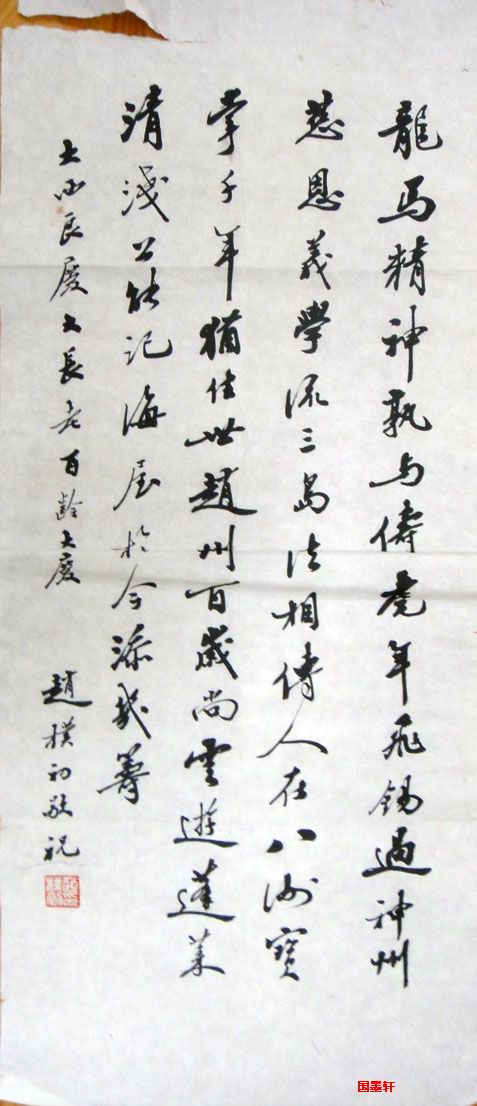 龍馬精神孰与儔虎年飛錫過神州
慈恩義學流三島法相傳人在八洲寶
掌千年猶住世趙州百歲尚雲遊蓬萊
清淺公能記海屋於今添幾籌
大西良慶大長老百齡大慶
趙樸初敬祝
国墨轩